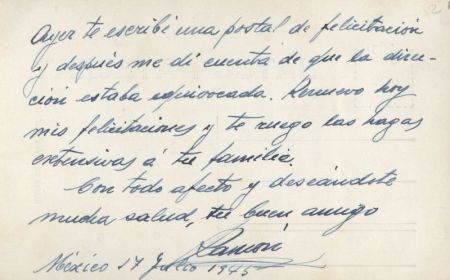 2
Ayer te escribí una postal de felicitación
y después me di cuenta de que la direc-
ción estaba equivocada. Renuevo hoy
mis felicitaciones y te ruego las hagas
extensivas á tu familia.
Con todo afecto y deseándote
mucha salud, tu buen amigo
Ramón
México 17 Julio 1945